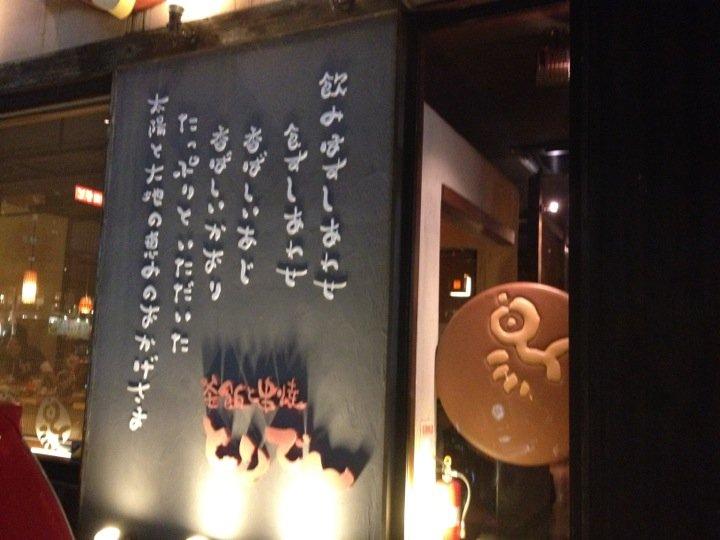 飲めばしあわせ
食すしあわせ
香ばしいあじ
香ばしいかおり
たっぷりといただいた
太陽と大地の恵みのおかげさま
釜飯と串焼